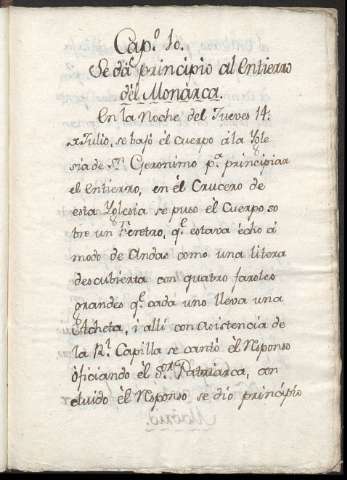 Cap.º 1o.
Se dâ principio al Entierro
del Monarca.
En la Noche del Jueves 14.
Julio, se bajó el cuerpo á la Ygle
sia de Sn. Geronimo pª. principiar
el entierro, en el Crucero de
esta Yglesia se puso el Cuerpo so
bre un Feretro, qe. estava echo á
modo de Andas como una litera
descubierta con quatro faroles
grandes qe. cada uno lleva una
Acheta, i allí con asistencia de
la Rl. Capilla se cantó el Responso
oficiando el Sor. Patriarca, con
cluido el Responso se dio principio